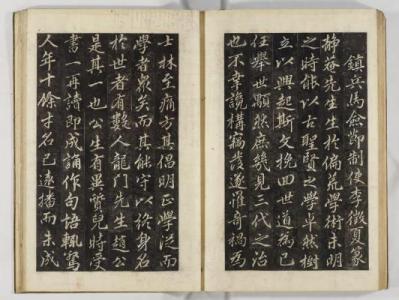 鎮兵馬僉節制使李徵夏篆
靜菴先生生於偏荒學術未明
之時能以古聖賢之學卓然樹
立以興起斯文挽回世道爲己
任舉世顒然庶幾見三代之治
也不幸讒構竊發遂罹奇禍爲
士林至痛方其倡明正學從而
學者衆矣而其能守以終身名
於世者有數人龍門先生趙公
是其一也公生有異質兒時受
書一再讀即成誦作句語輒驚
人年十餘才名已遠播而未成